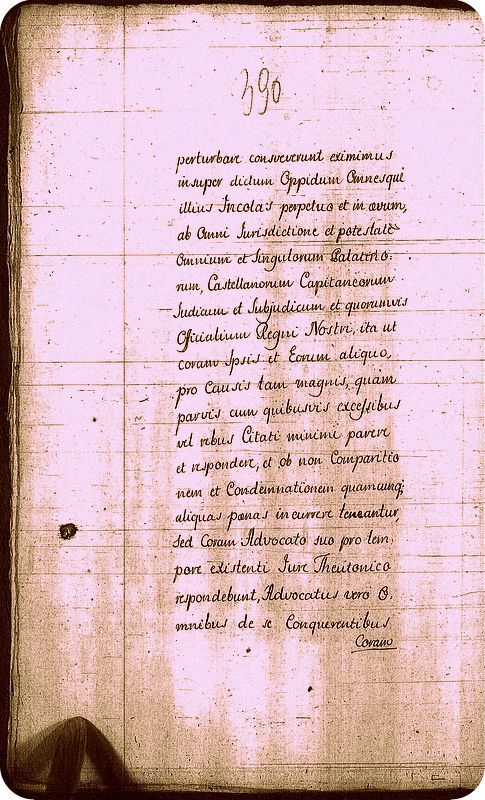 390
perturbare consveverunt eximimus
insuper dictum Oppidum Omnesqui
illius Incolas perpetuo et in ævum,
ab Omni Jurisdictione et potestate
Omnium et Singulorum Palatino:
rum, Castellanorum Capitaneorum
Judicum et Subjudicum et quorumvis
Officialium Regni Nostri, ita ut
coram Ipsis et Eorum aliquo,
pro Causis tam magnis, quam
parvis cum quibusvis excessibus
vel rebus Citati minime parere
et respondere, et ob non Comparitio
nem et Condemnationem quamcunq;
aliquas pœnas incurrere teneantur,
Sed Coram Advocato suo pro tem,
pore existenti Jure Theutonico
respondebunt, Advocatus vero O:
mnibus de se Conquerentibus
Coram